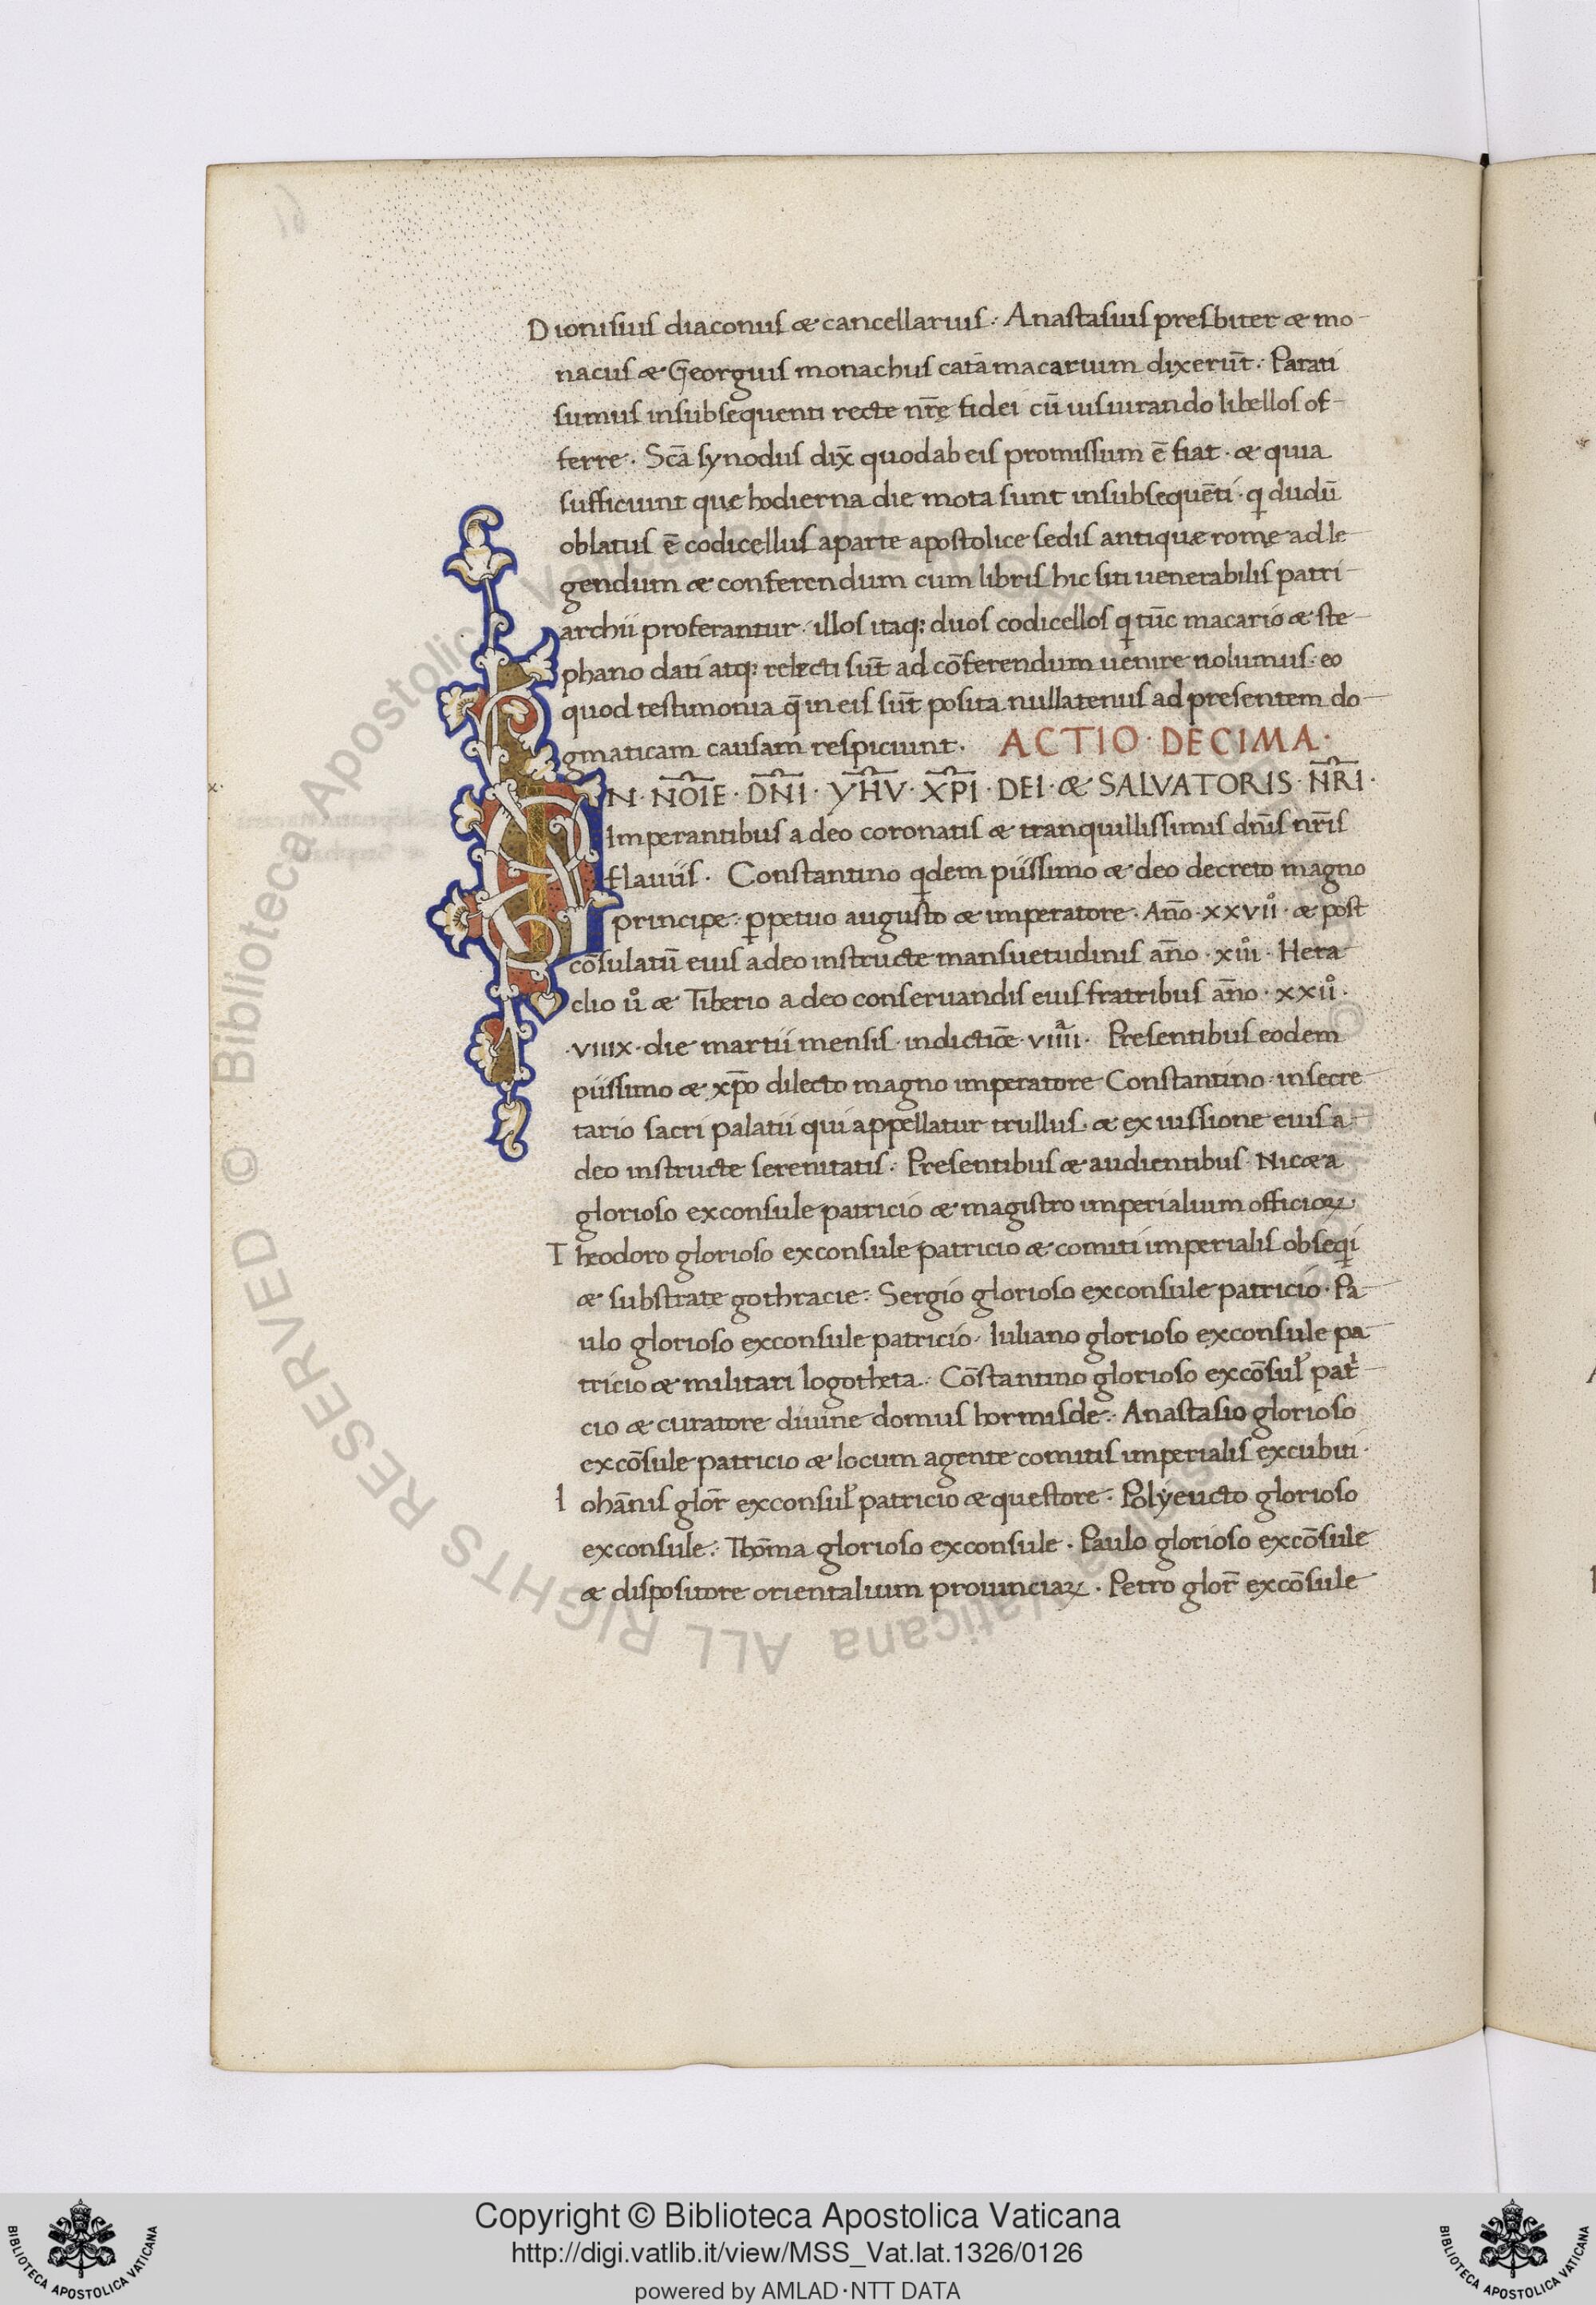 Dionisius diaconus æ cancellarius. Anastasius presbiter æ mo-
nacus æ Georgius monachus catā macarium dixerūt. Parati
sumus insubsequenti recte nr̄ę fidei cū iusiurando libellos of-
ferre. Scā synodus dix̄ quodab eis promissum ē fiat. æ quia
sufficiunt que hodierna die mota sunt insubsequēti. q dudū
oblatus ē codicellus aparte apostolice sedis antiquæ romę ad le
gendum æ conferendum cum libris hic siti uenerabilis patri
archii proferantur. illos itaq; duos codicellos q tūc macario æ ste
phano dati atq; relecti sūt ad cōferendum uenire nolumus. eo
quod testimonia q̄ in eis sūt posita nullatenus ad presentem do-
gmaticam causam respiciunt. ACTIO · DECIMA ·
IN · NOĪE · DN̄I · YHV̄ · XP̄I · DEI · æ SALVATORIS · NR̄I ·
Imperantibus a deo coronatis æ tranquillissimis dn̄is nr̄is
flauiis. Constantino qdem piissimo æ deo decreto magno
principe. ꝑpetuo augusto æ imperatore. Ān̄o · xxvii° · æ post
cōsulatū eius adeo instructe mansuetudinis an̄no · xiii° · Hera
clio u° æ Tiberio a deo conseruandis eius fratribus an̄o · xxii° ·
· viiix · die martii mensis · indictiōe · viiiiª · Presentibus eodem
piissimo æ xp̄o dilecto magno imperatore Constantino · insecre
tario sacri palatii qui appellatur trullus. æ ex iussione eius a
deo instructe serenitatis. Presentibus æ audientibus. Nicæa
glorioso exconsule patricio æ magistro imperialium officioꝝ
Theodoro glorioso exconsule patricio æ comiti imperialis obseqi
æ substrate gothracie. Sergio glorioso exconsule patricio. Pa-
ulo glorioso exconsule patricio. Iuliano glorioso exconsule pa
tricio æ militari logotheta. Cōstantino glorioso excōsuł patⁱ
cio æ curatore diuine domus hormisde. Anastasio glorioso
excōsule patricio æ locum agente comitis imperialis excubiti.
Iohān̄is glor̄ exconsuł patricio æ questore. Polyeucto glorioso
exconsule. Thōma glorioso exconsule. Paulo glorioso excōsule
æ dispositore orientalium prouinciaꝝ. Petro glor̄ excōsule
© Biblioteca Apostolica Vaticana ALL RIGHTS RESERVED
Copyright © Biblioteca Apostolica Vaticana
http://digi.vatlib.it/view/MSS_Vat.lat.1326/0126
powered by AMLAD·NTT DATA
BIBLIOTECA APOSTOLICA VATICANA
BIBLIOTECA APOSTOLICA VATICANA